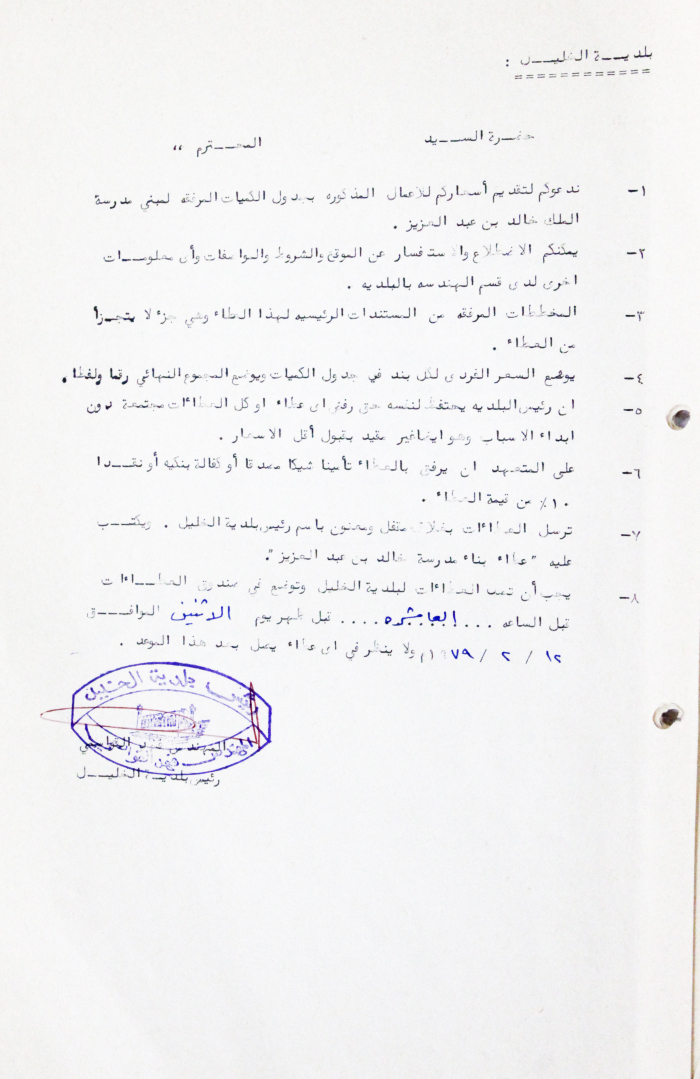 بلدية الخليل :
حضرة السيد المحترم ،،
١- ندعوكم لتقديم أسعاركم للأعمال المذكوره بجدول الكميات المرفقه لمبنى مدرسة
الملك خالد بن عبد العزيز .
٢- يمكنكم الاطلاع والاستفسار عن الموقع والشروط والمواصفات وأى معلومات
اخرى لدى قسم الهندسه بالبلديه .
٣- المخططات المرفقه من المستندات الرئيسيه لهذا العطاء وهي جزء لا يتجزأ
من العطاء .
٤- يوضع السعر الفردى لكل بند في جدول الكميات ويوضع المجموع النهائي رقما ولفظا .
٥- ان رئيس البلديه يحتفظ لنفسه حق رفض اى عطاء او كل العطاءات مجتمعة دون
ابداء الاسباب وهو ايضا غير مقيد بقبول أقل الاسعار .
٦- على المتعهد ان يرفق بالعطاء تأمينا شيكا مصدقا أو كفالة بنكيه أو نقدا
١٠٪ من قيمة العطاء .
٧- ترسل العطاءات بغلاف مقفل ومعنون باسم رئيس بلدية الخليل . ويكتب
عليه "عطاء بناء مدرسة خالد بن عبد العزيز".
٨- يجب أن تصل العطاءات لبلدية الخليل وتوضع في صندوق العطاءات
قبل الساعه ... العاشره .... قبل ظهر يوم الاثنين الموافق
١٢ / ٢ / ١٩٧٩م ولا ينظر في اى عطاء يصل بعد هذا الموعد .
رئيس بلدية الخليل
المهندس فهد القواسمي
رئيس بلدية الخليل